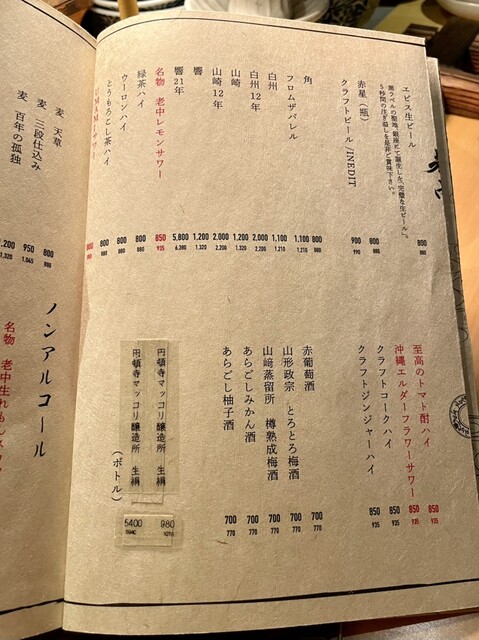 エビス生ビール 800 880
赤星(瓶) 800 880
クラフトビール/INEDIT 900 990
角 800 880
フロムザバレル 1,100 1,210
白州 1,100 1,210
白州12年 2,000 2,200
山崎 1,200 1,320
山崎12年 2,000 2,200
響 1,200 1,320
響21年 5,800 6,380
名物 老中レモンサワー 850 935
緑茶ハイ 800 880
ウーロンハイ 800 880
とうもろこし茶ハイ 800 880
至高のトマト酎ハイ 850 935
沖縄エルダーフラワーサワー 850 935
クラフトコークハイ 850 935
クラフトジンジャーハイ 850 935
赤葡萄酒 700 770
山形政宗 とろとろ梅酒 700 770
山﨑蒸留所 樽熟成梅酒 700 770
あらごしみかん酒 700 770
あらごし柚子酒 700 770
円頓寺マッコリ醸造所 生絹 980
円頓寺マッコリ醸造所 生絹 (ボトル) 5400
麦 天草 800 880
麦 三段仕込み 950 1,045
麦 百年の孤独 1,320
ノンアルコール
名物 老中生れも